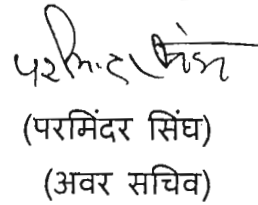 परमिंदर सिंह
(परमिंदर सिंघ)
(अवर सचिव)